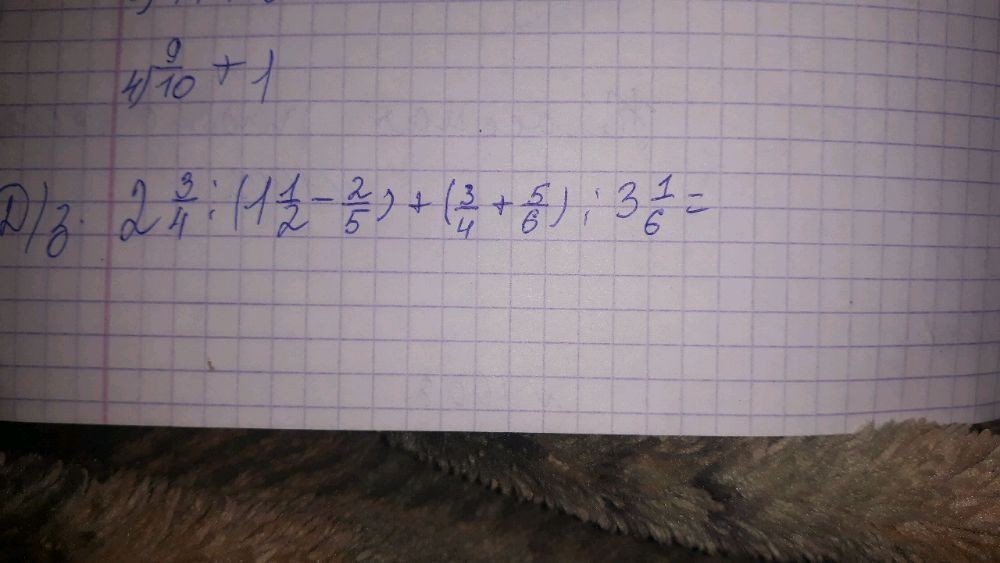 4) 9/10 + 1
Д/з. 2 3/4 : (1 1/2 - 2/5) + (3/4 + 5/6) : 3 1/6 =